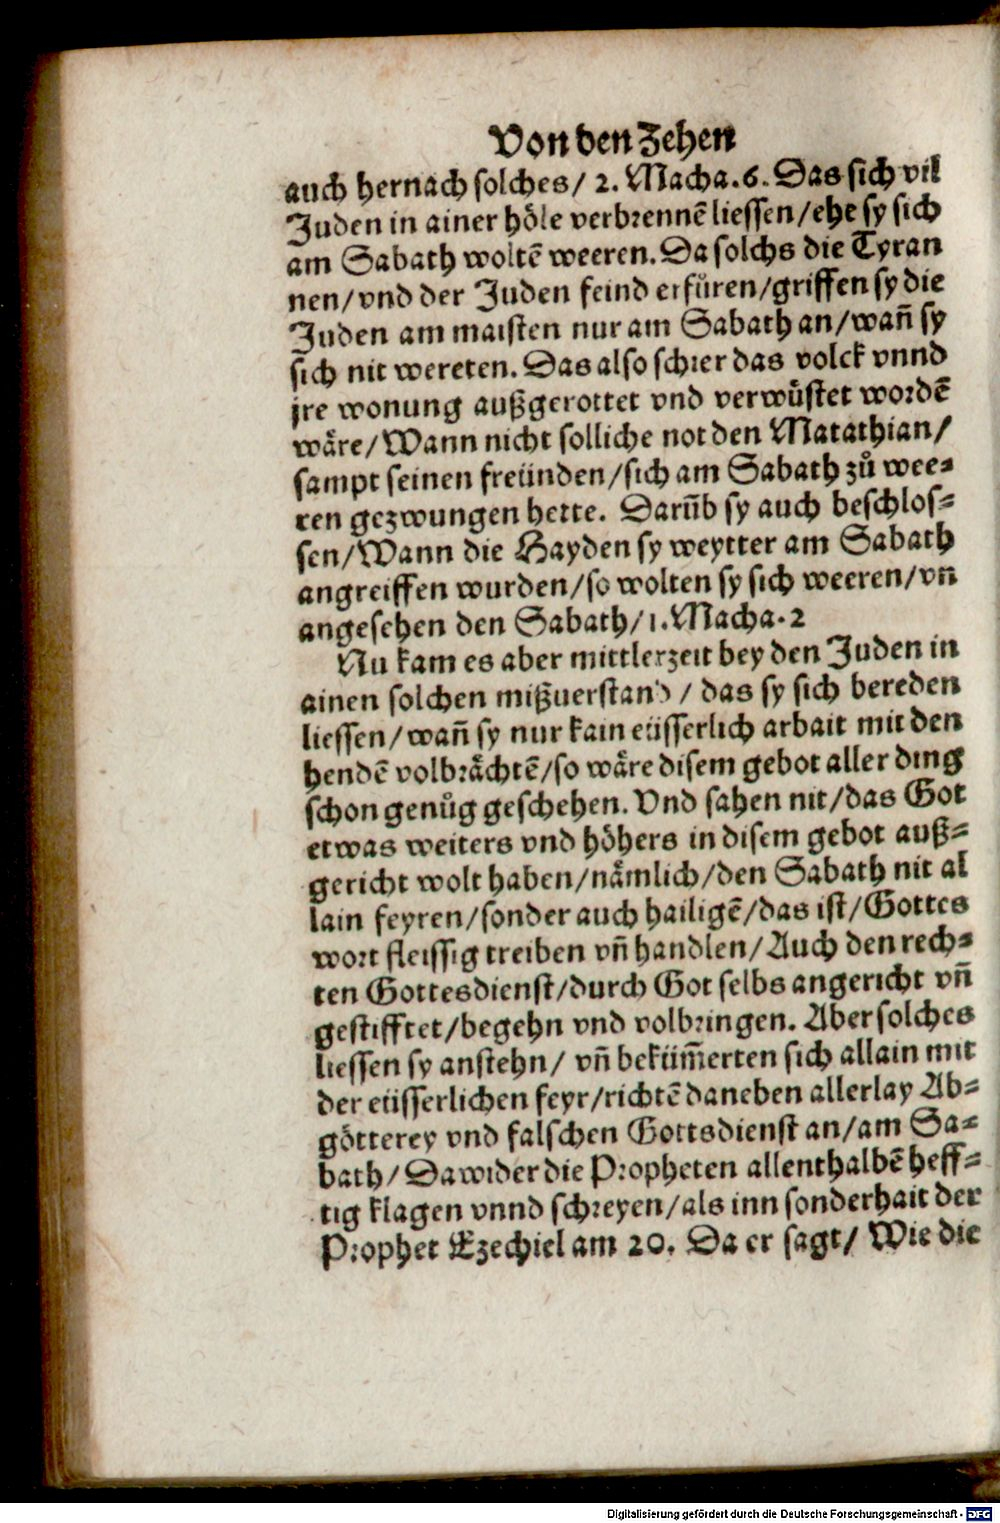 Von den Zehen
auch hernach solches/ 2. Macha.6. Das sich vil
Juden in ainer höle verbrennē liessen/ehe sy sich
am Sabath woltē weeren. Da solchs die Tyran
nen/vnd der Juden feind erfůren/griffen sy die
Juden am maisten nur am Sabath an/wañ sy
sich nit wereten. Das also schier das volck vnnd
jre wonung außgerottet vnd verwůstet wordē
wäre/Wann nicht solliche not den Matathian/
sampt seinen freünden/sich am Sabath zů wee⸗
ren gezwungen hette. Darūb sy auch beschlos⸗
sen/Wann die Hayden sy weytter am Sabath
angreiffen wurden/so wolten sy sich weeren/vñ
angesehen den Sabath/1.Macha.2
Nu kam es aber mittlerzeit bey den Juden in
ainen solchen mißuerstand / das sy sich bereden
liessen/wañ sy nur kain eüsserlich arbait mit den
hendē volbrächtē/so wäre disem gebot aller ding
schon genůg geschehen. Vnd sahen nit/das Got
etwas weiters vnd höhers in disem gebot auß⸗
gericht wolt haben/nämlich/den Sabath nit al
lain feyren/sonder auch hailigē/das ist/Gottes
wort fleissig treiben vñ handlen/Auch den rech⸗
ten Gottesdienst/durch Got selbs angericht vñ
gestifftet/begehn vnd volbringen. Aber solches
liessen sy anstehn/ vñ beküm̃erten sich allain mit
der eüsserlichen feyr/richtē daneben allerlay Ab⸗
götterey vnd falschen Gottsdienst an/am Sa⸗
bath/ Dawider die Propheten allenthalbē heff⸗
tig klagen vnnd schreyen/als inn sonderhait der
Prophet Ezechiel am 20. Da er sagt/ Wie die
Digitalisierung gefördert durch die Deutsche Forschungsgemeinschaft - DFG